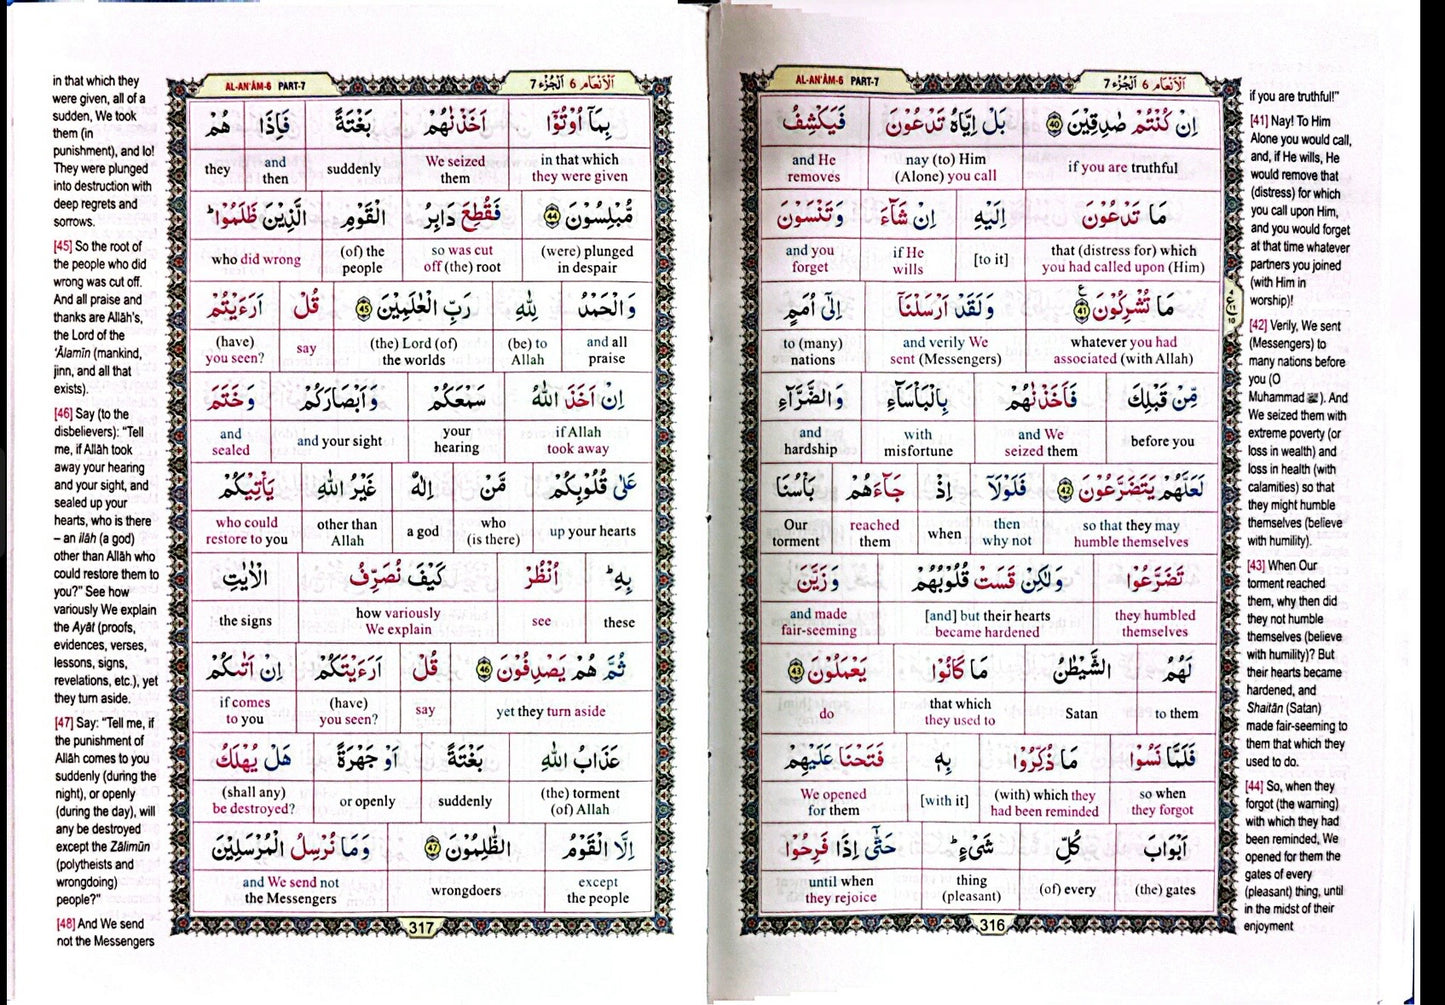 AL-AN'ÃM-6 PART-7
اَلْاَنْعَام 6 اَلْجُزْء 7
اِنْ كُنْتُمْ صٰدِقِيْنَ ﴿40﴾ بَلْ اِيَّاهُ تَدْعُوْنَ فَيَكْشِفُ
if you are truthful
nay (to) Him (Alone) you call
and He removes
مَا تَدْعُوْنَ اِلَيْهِ اِنْ شَآءَ وَتَنْسَوْنَ
that (distress for) which you had called upon (Him)
[to it]
if He wills
and you forget
مَا تُشْرِكُوْنَ ﴿41﴾ وَلَقَدْ اَرْسَلْنَآ اِلٰٓى اُمَمٍ
whatever you had associated (with Allah)
and verily We sent (Messengers)
to (many) nations
مِّنْ قَبْلِكَ فَاَخَذْنٰهُمْ بِالْبَاْسَآءِ وَالضَّرَّآءِ
before you
and We seized them
with misfortune
and hardship
لَعَلَّهُمْ يَتَضَرَّعُوْنَ ﴿42﴾ فَلَوْلَآ اِذْ جَآءَهُمْ بَاْسُنَا
so that they may humble themselves
then why not
when
reached them
Our torment
تَضَرَّعُوْا وَلٰكِنْ قَسَتْ قُلُوْبُهُمْ وَزَيَّنَ
they humbled themselves
[and] but their hearts became hardened
and made fair-seeming
لَهُمُ الشَّيْطٰنُ مَا كَانُوْا يَعْمَلُوْنَ ﴿43﴾
to them
Satan
that which they used to
do
فَلَمَّا نَسُوْا مَا ذُكِّرُوْا بِهٖ فَتَحْنَا عَلَيْهِمْ
so when they forgot
(with) which they had been reminded
[with it]
We opened for them
اَبْوَابَ كُلِّ شَىْءٍ ؕ حَتّٰٓى اِذَا فَرِحُوْا
(the) gates
(of) every
thing (pleasant)
until when they rejoice
316
if you are truthful!"
[41] Nay! To Him
Alone you would call,
and, if He wills, He
would remove that
(distress) for which
you call upon Him,
and you would forget
at that time whatever
partners you joined
(with Him in
worship)!
[42] Verily, We sent
(Messengers) to
many nations before
you (O
Muhammad ﷺ). And
We seized them with
extreme poverty (or
loss in wealth) and
loss in health (with
calamities) so that
they might humble
themselves (believe
with humility).
[43] When Our
torment reached
them, why then did
they not humble
themselves (believe
with humility)? But
their hearts became
hardened, and
Shaitân (Satan)
made fair-seeming to
them that which they
used to do.
[44] So, when they
forgot (the warning)
with which they had
been reminded, We
opened for them the
gates of every
(pleasant) thing, until
in the midst of their
enjoyment
AL-AN'ÃM-6 PART-7
اَلْاَنْعَام 6 اَلْجُزْء 7
بِمَآ اُوْتُوْٓا اَخَذْنٰهُمْ بَغْتَةً فَاِذَا هُمْ
in that which they were given
We seized them
suddenly
and then
they
مُّبْلِسُوْنَ ﴿44﴾ فَقُطِعَ دَابِرُ الْقَوْمِ الَّذِيْنَ ظَلَمُوْا ؕ
(were) plunged in despair
so was cut off (the) root
(of) the people
who did wrong
وَالْحَمْدُ لِلّٰهِ رَبِّ الْعٰلَمِيْنَ ﴿45﴾ قُلْ اَرَءَيْتُمْ
and all praise
(be) to Allah
(the) Lord (of) the worlds
say
(have) you seen?
اِنْ اَخَذَ اللّٰهُ سَمْعَكُمْ وَاَبْصَارَكُمْ وَخَتَمَ
if Allah took away
your hearing
and your sight
and sealed
عَلٰى قُلُوْبِكُمْ مَّنْ اِلٰهٌ غَيْرُ اللّٰهِ يَاْتِيْكُمْ
up your hearts
who (is there)
a god
other than Allah
who could restore to you
بِهٖ ؕ اُنْظُرْ كَيْفَ نُصَرِّفُ الْاٰيٰتِ
these
see
how variously We explain
the signs
ثُمَّ هُمْ يَصْدِفُوْنَ ﴿46﴾ قُلْ اَرَءَيْتَكُمْ اِنْ اَتٰىكُمْ
yet they turn aside
say
(have) you seen?
if comes to you
عَذَابُ اللّٰهِ بَغْتَةً اَوْ جَهْرَةً هَلْ يُهْلَكُ
(the) torment (of) Allah
suddenly
or openly
(shall any) be destroyed?
اِلَّا الْقَوْمُ الظّٰلِمُوْنَ ﴿47﴾ وَمَا نُرْسِلُ الْمُرْسَلِيْنَ
except the people
wrongdoers
and We send not the Messengers
317
in that which they
were given, all of a
sudden, We took
them (in
punishment), and lo!
They were plunged
into destruction with
deep regrets and
sorrows.
[45] So the root of
the people who did
wrong was cut off.
And all praise and
thanks are Allâh's,
the Lord of the
'Âlamîn (mankind,
jinn, and all that
exists).
[46] Say (to the
disbelievers): "Tell
me, if Allâh took
away your hearing
and your sight, and
sealed up your
hearts, who is there
– an ilâh (a god)
other than Allâh who
could restore them to
you?" See how
variously We explain
the Ayât (proofs,
evidences, verses,
lessons, signs,
revelations, etc.), yet
they turn aside.
[47] Say: "Tell me, if
the punishment of
Allâh comes to you
suddenly (during the
night), or openly
(during the day), will
any be destroyed
except the Zâlimûn
(polytheists and
wrongdoing)
people?"
[48] And We send
not the Messengers